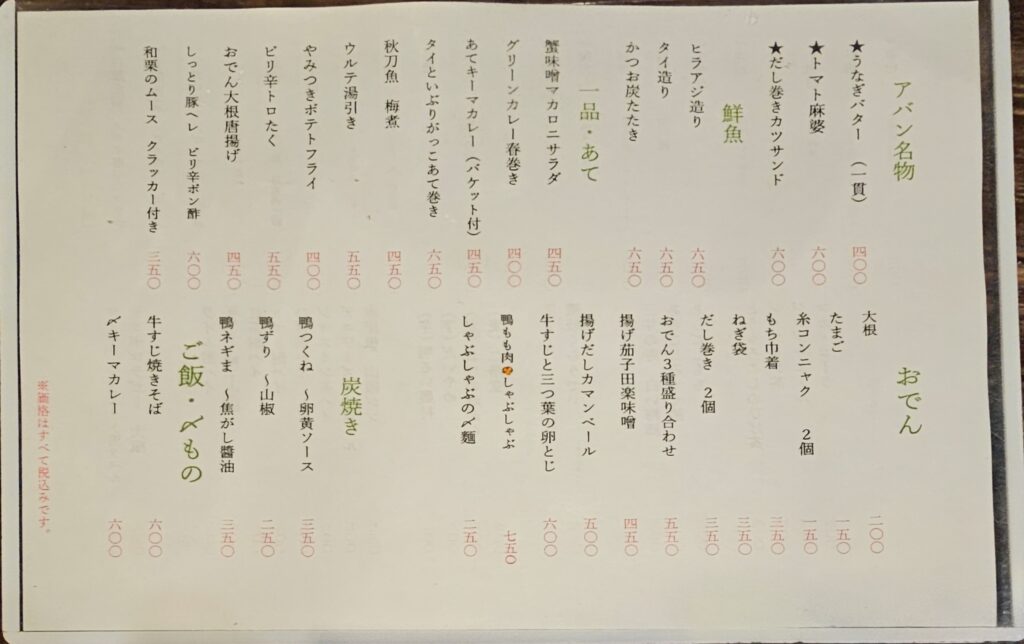 アバン名物
★うなぎバター （一貫） 四〇〇
★トマト麻婆 六〇〇
★だし巻きカツサンド 六〇〇
鮮魚
ヒラアジ造り 六五〇
タイ造り 六五〇
かつお炭たたき 六五〇
一品・あて
蟹味噌マカロニサラダ 四五〇
グリーンカレー春巻き 四〇〇
あてキーマカレー（バケット付） 四五〇
タイといぶりがっこあて巻き 六五〇
秋刀魚 梅煮 四五〇
ウルテ湯引き 五五〇
やみつきポテトフライ 四〇〇
ピリ辛トロたく 五五〇
おでん大根唐揚げ 四五〇
しっとり豚ヘレ ピリ辛ポン酢 六〇〇
和栗のムース クラッカー付き 三五〇
おでん
大根 二〇〇
たまご 一五〇
糸コンニャク ２個 一五〇
もち巾着 三五〇
ねぎ袋 三五〇
だし巻き ２個 三五〇
おでん３種盛り合わせ 五五〇
揚げ茄子田楽味噌 四五〇
揚げだしカマンベール 五〇〇
牛すじと三つ葉の卵とじ 六〇〇
鴨もも肉🍊しゃぶしゃぶ 七五〇
しゃぶしゃぶの〆麺 二五〇
炭焼き
鴨つくね ～卵黄ソース 三五〇
鴨ずり ～山椒 二五〇
鴨ネギま ～焦がし醬油 三五〇
ご飯・〆もの
牛すじ焼きそば 六〇〇
〆キーマカレー 六〇〇
※価格はすべて税込みです。